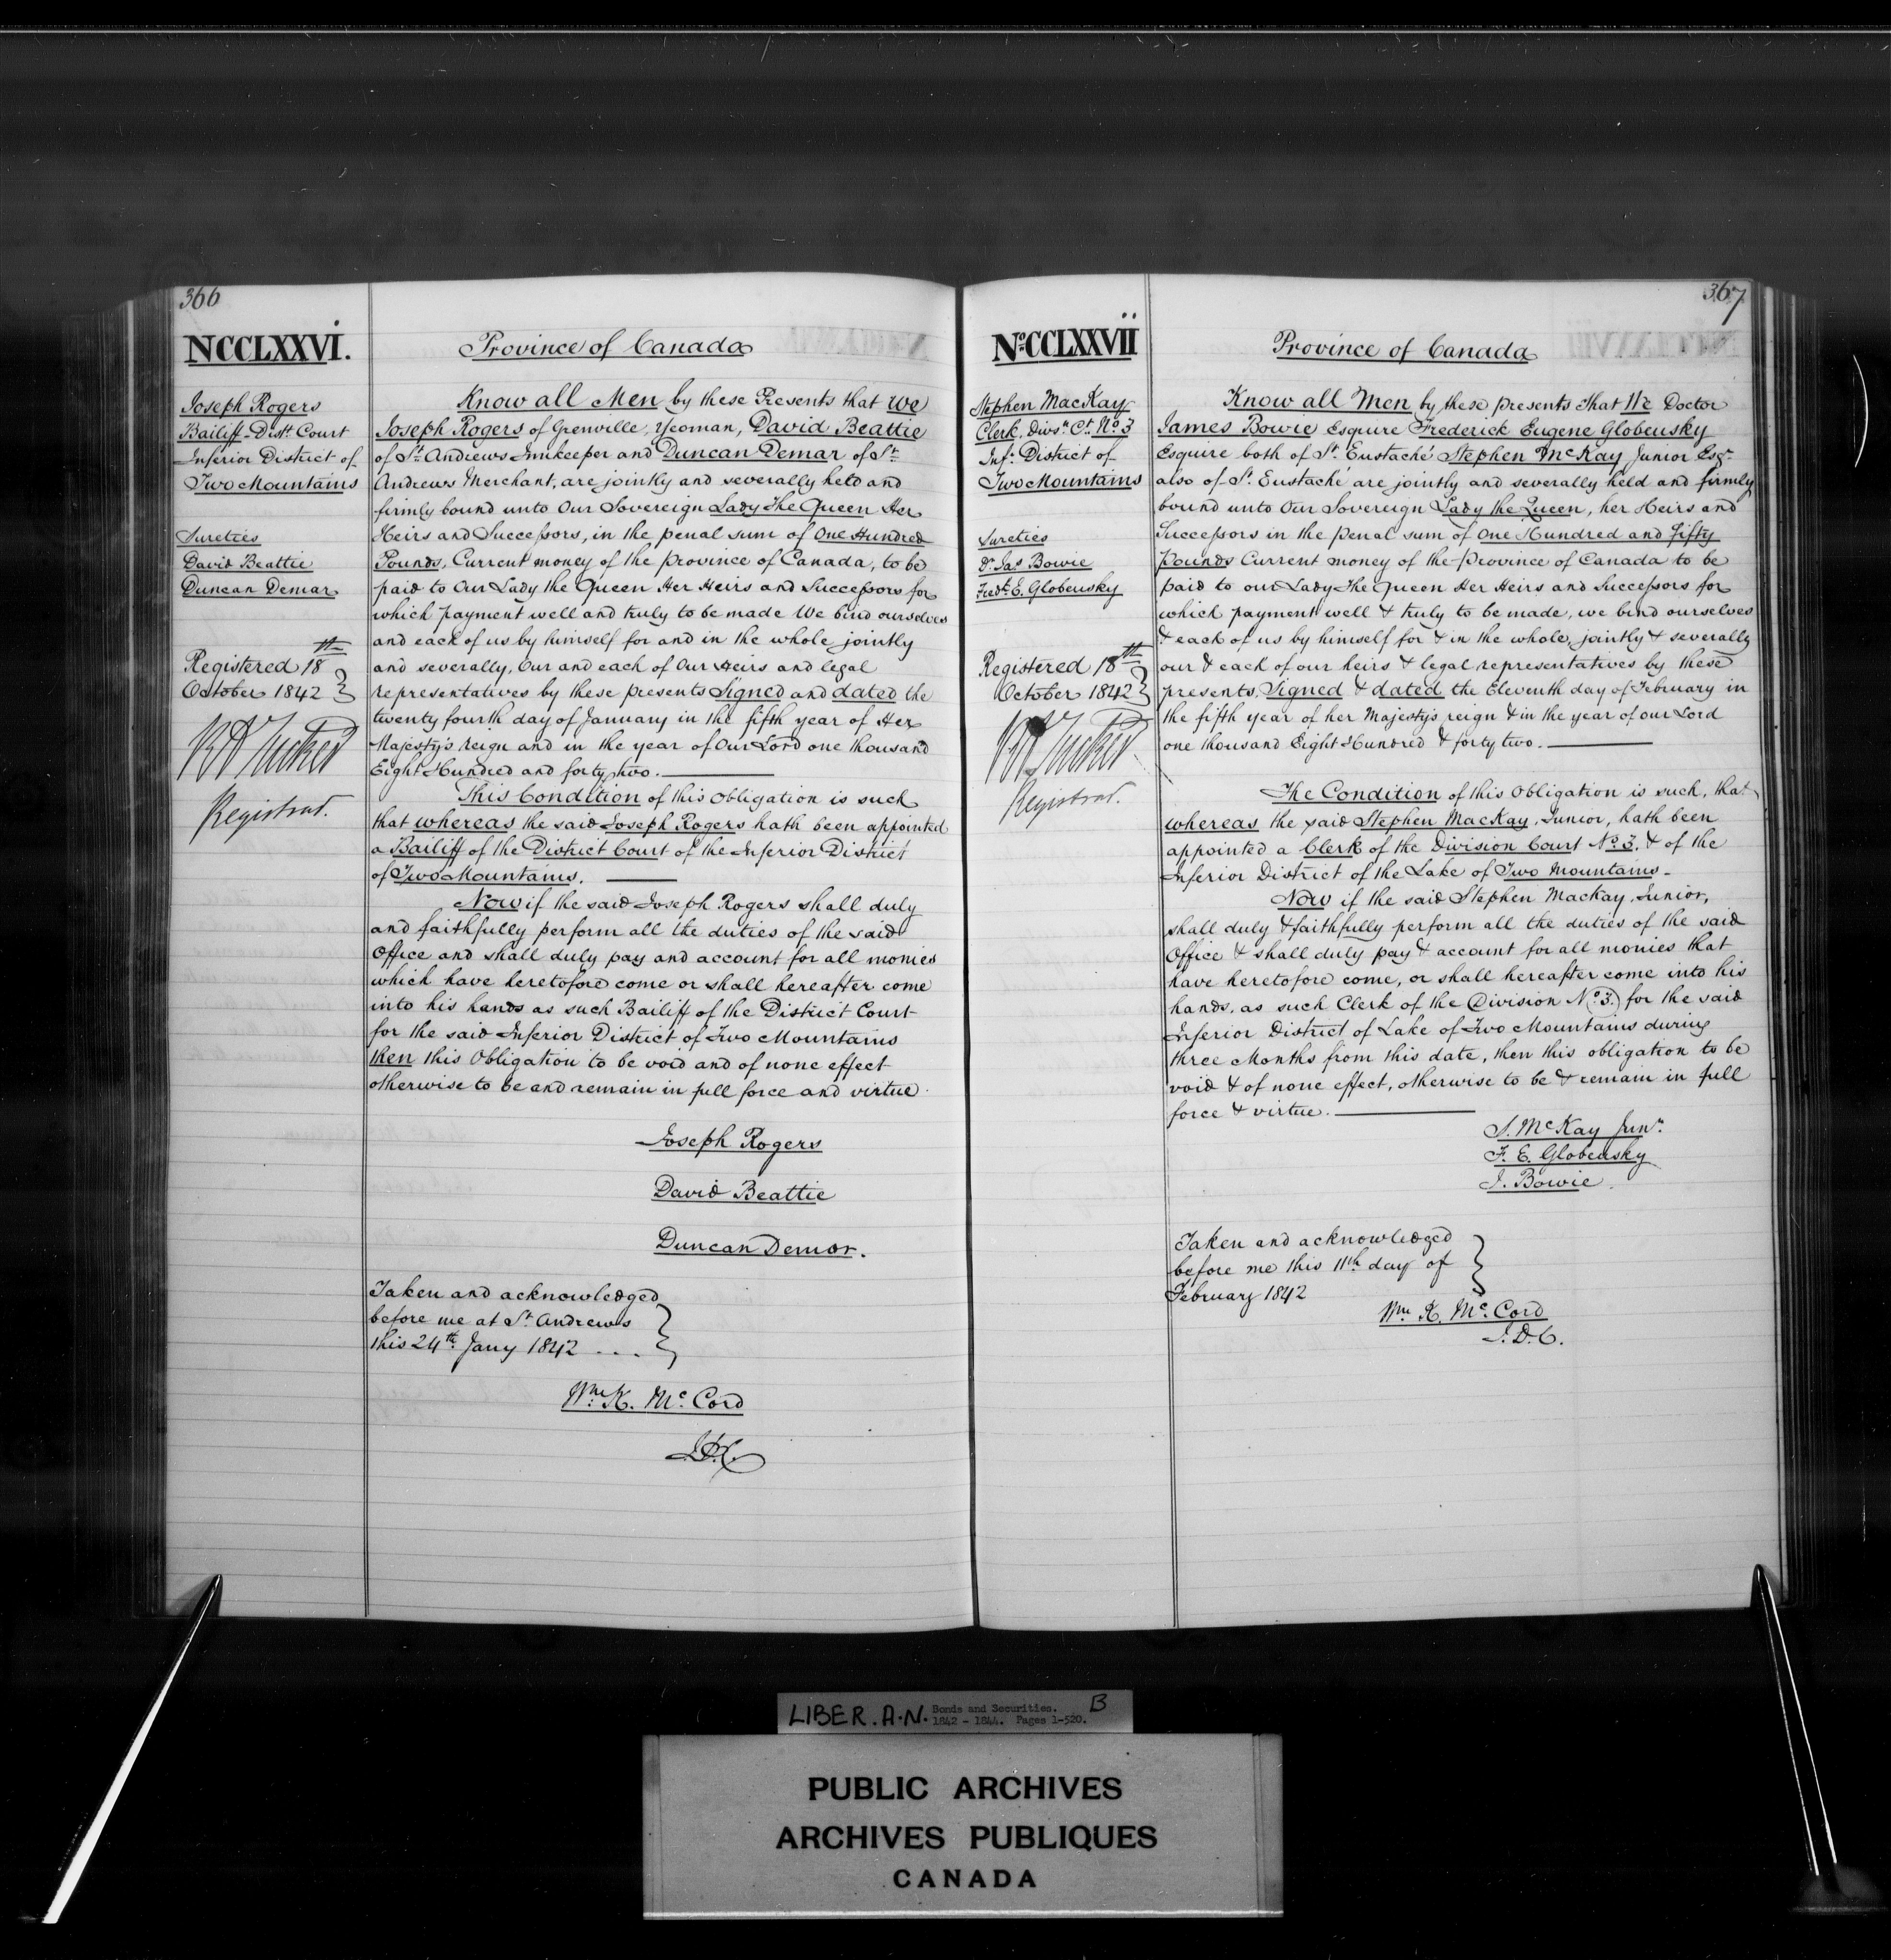 366
NCCLXXVI.
Province of Canada
Joseph Rogers
Bailiff - Dist. Court
Inferior District of
Two Mountains
Sureties
David Beattie
Duncan Demar
Registered 18th
October 1842
Registrar.
Know all Men by these Presents that We
Joseph Rogers of Grenville, Yeoman, David Beattie
of St. Andrews Innkeeper and Duncan Demar of St.
Andrews Merchant, are jointly and severally held and
firmly bound unto Our Sovereign Lady The Queen Her
Heirs and Successors, in the penal sum of One Hundred
Pounds, Current money of the Province of Canada, to be
paid to Our Lady the Queen Her Heirs and Successors for
which payment well and truly to be made We bind ourselves
and each of us by himself for and in the whole jointly
and severally, Our and each of Our Heirs and legal
representatives by these presents Signed and dated the
twenty fourth day of January in the fifth year of Her
Majesty's reign and in the year of Our Lord one thousand
Eight Hundred and forty two.
This Condition of this Obligation is such
that whereas the said Joseph Rogers hath been appointed
a Bailiff of the District Court of the Inferior District
of Two Mountains.
Now if the said Joseph Rogers shall duly
and faithfully perform all the duties of the said
Office and shall duly pay and account for all monies
which have heretofore come or shall hereafter come
into his hands as such Bailiff of the District Court
for the said Inferior District of Two Mountains
then this Obligation to be void and of none effect
otherwise to be and remain in full force and virtue.
Joseph Rogers
David Beattie
Duncan Demar.
Taken and acknowledged
before me at St. Andrews
this 24th Jany 1842 ...
Wm. K. McCord
367
No. CCLXXVII
Province of Canada
Stephen MacKay
Clerk, Divsn. Ct. No. 3
Infr. District of
Two Mountains
Sureties
Dr. Jas. Bowie
Fredk. E. Globensky
Registered 18th
October 1842
Registrar.
Know all Men by these presents That We Doctor
James Bowie Esquire Frederick Eugene Globensky
Esquire both of St. Eustaché Stephen McKay Junior Esqr.
also of St. Eustaché are jointly and severally held and firmly
bound unto Our Sovereign Lady the Queen, her Heirs and
Successors in the penal sum of One Hundred and Fifty
Pounds Current money of the Province of Canada to be
paid to our Lady The Queen Her Heirs and Successors for
which payment well & truly to be made, we bind ourselves
& each of us by himself for & in the whole, jointly & severally
our & each of our heirs & legal representatives by these
presents, Signed & dated the Eleventh day of February in
the fifth year of her Majesty's reign & in the year of our Lord
one thousand Eight Hundred & forty two.
The Condition of this Obligation is such, that
whereas the said Stephen MacKay, Junior, hath been
appointed a Clerk of the Division Court No. 3. & of the
Inferior District of the Lake of Two Mountains -
Now if the said Stephen MacKay, Junior,
shall duly & faithfully perform all the duties of the said
Office & shall duly pay & account for all monies that
have heretofore come, or shall hereafter come into his
hands, as such Clerk of the Division No. 3.) for the said
Inferior District of Lake of Two Mountains during
three Months from this date, then this obligation to be
void & of none effect, otherwise to be & remain in full
force & virtue.
S. McKay Junr.
F. E. Globensky
J. Bowie.
Taken and acknowledged
before me this 11th day of
February 1842
Wm. K. McCord
J.D.C.
LIBER. A.N. Bonds and Securities. B
1842 - 1844. Pages 1-520.
PUBLIC ARCHIVES
ARCHIVES PUBLIQUES
CANADA